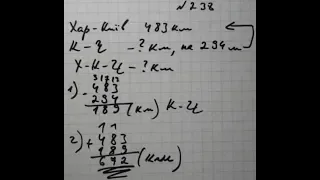 №238
Хар-Київ 483 км
К-Ч - ? км, на 294 м
Х-К-Ч - ? км
3 17 13
1) - 483
294
189 (км) К-Ч
1 1
2) + 483
189
672 (км)